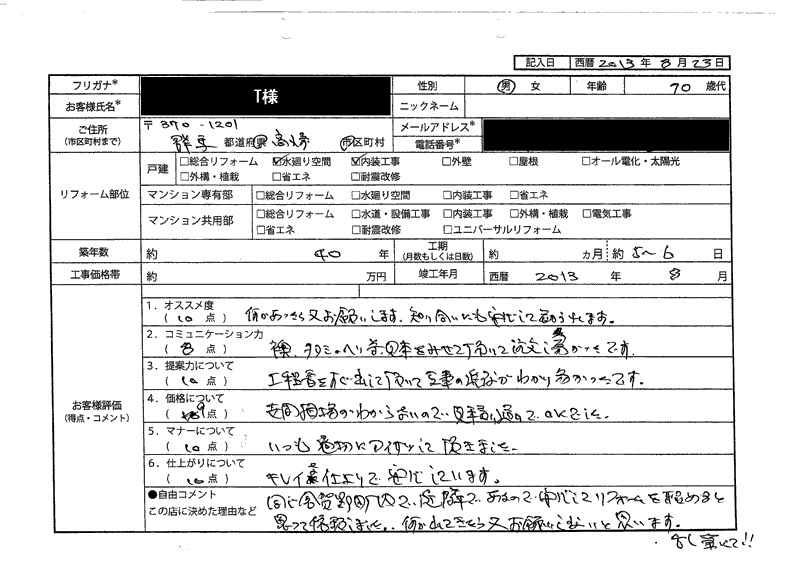 記入日 西暦 2013 年 8 月 23 日
フリガナ* T様 性別 男 女 年齢 70 歳代
お客様氏名* ニックネーム
ご住所 (市区町村まで) 〒370-1201 メールアドレス*
群馬 都道府県 高崎 市区町村 電話番号*
リフォーム部位
戸建 □総合リフォーム ☑水廻り空間 ☑内装工事 □外壁 □屋根 □オール電化・太陽光
□外構・植栽 □省エネ □耐震改修
マンション専有部 □総合リフォーム □水廻り空間 □内装工事 □省エネ
マンション共用部 □総合リフォーム □水道・設備工事 □内装工事 □外構・植栽 □電気工事
□省エネ □耐震改修 □ユニバーサルリフォーム
築年数 約 40 年 工期 (月数もしくは日数) 約 カ月 約 5〜6 日
工事価格帯 約 万円 竣工年月 西暦 2013 年 8 月
お客様評価 (得点・コメント)
1．オススメ度
(10 点) 何かあったら又お願いします。知り合いにも安心して勧められます。
2．コミュニケーション力
(8 点) 襖、タタミのヘリ等見本をみせて頂いて注文し易かったです。
3．提案力について
(10 点) 工程書をすぐ出して頂いて工事の流れがわかり易かったです。
4．価格について
(9点) 相場がわからないので、見積り通りで、OKでした。
5．マナーについて
(10 点) いつも親切にアイサツして頂きました。
6．仕上がりについて
(10 点) キレイな仕上りで安心しています。
●自由コメント
この店に決めた理由など
同じ倉賀野町内で、近隣であるので安心してリフォームを頼めると
思って依頼しました。何かでてきたら又お願いしたいと思います。